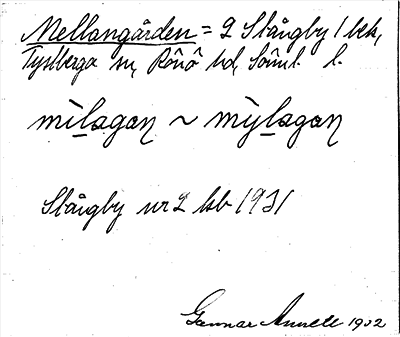 Mellangården = 2 Slångby 1 bek,
Tystberga sn, Rönö hd, Söml. l.
mìlagaɳ ~ mỳlagaɳ
Slångby nr 2 lsb 1931
Gunnar 1932